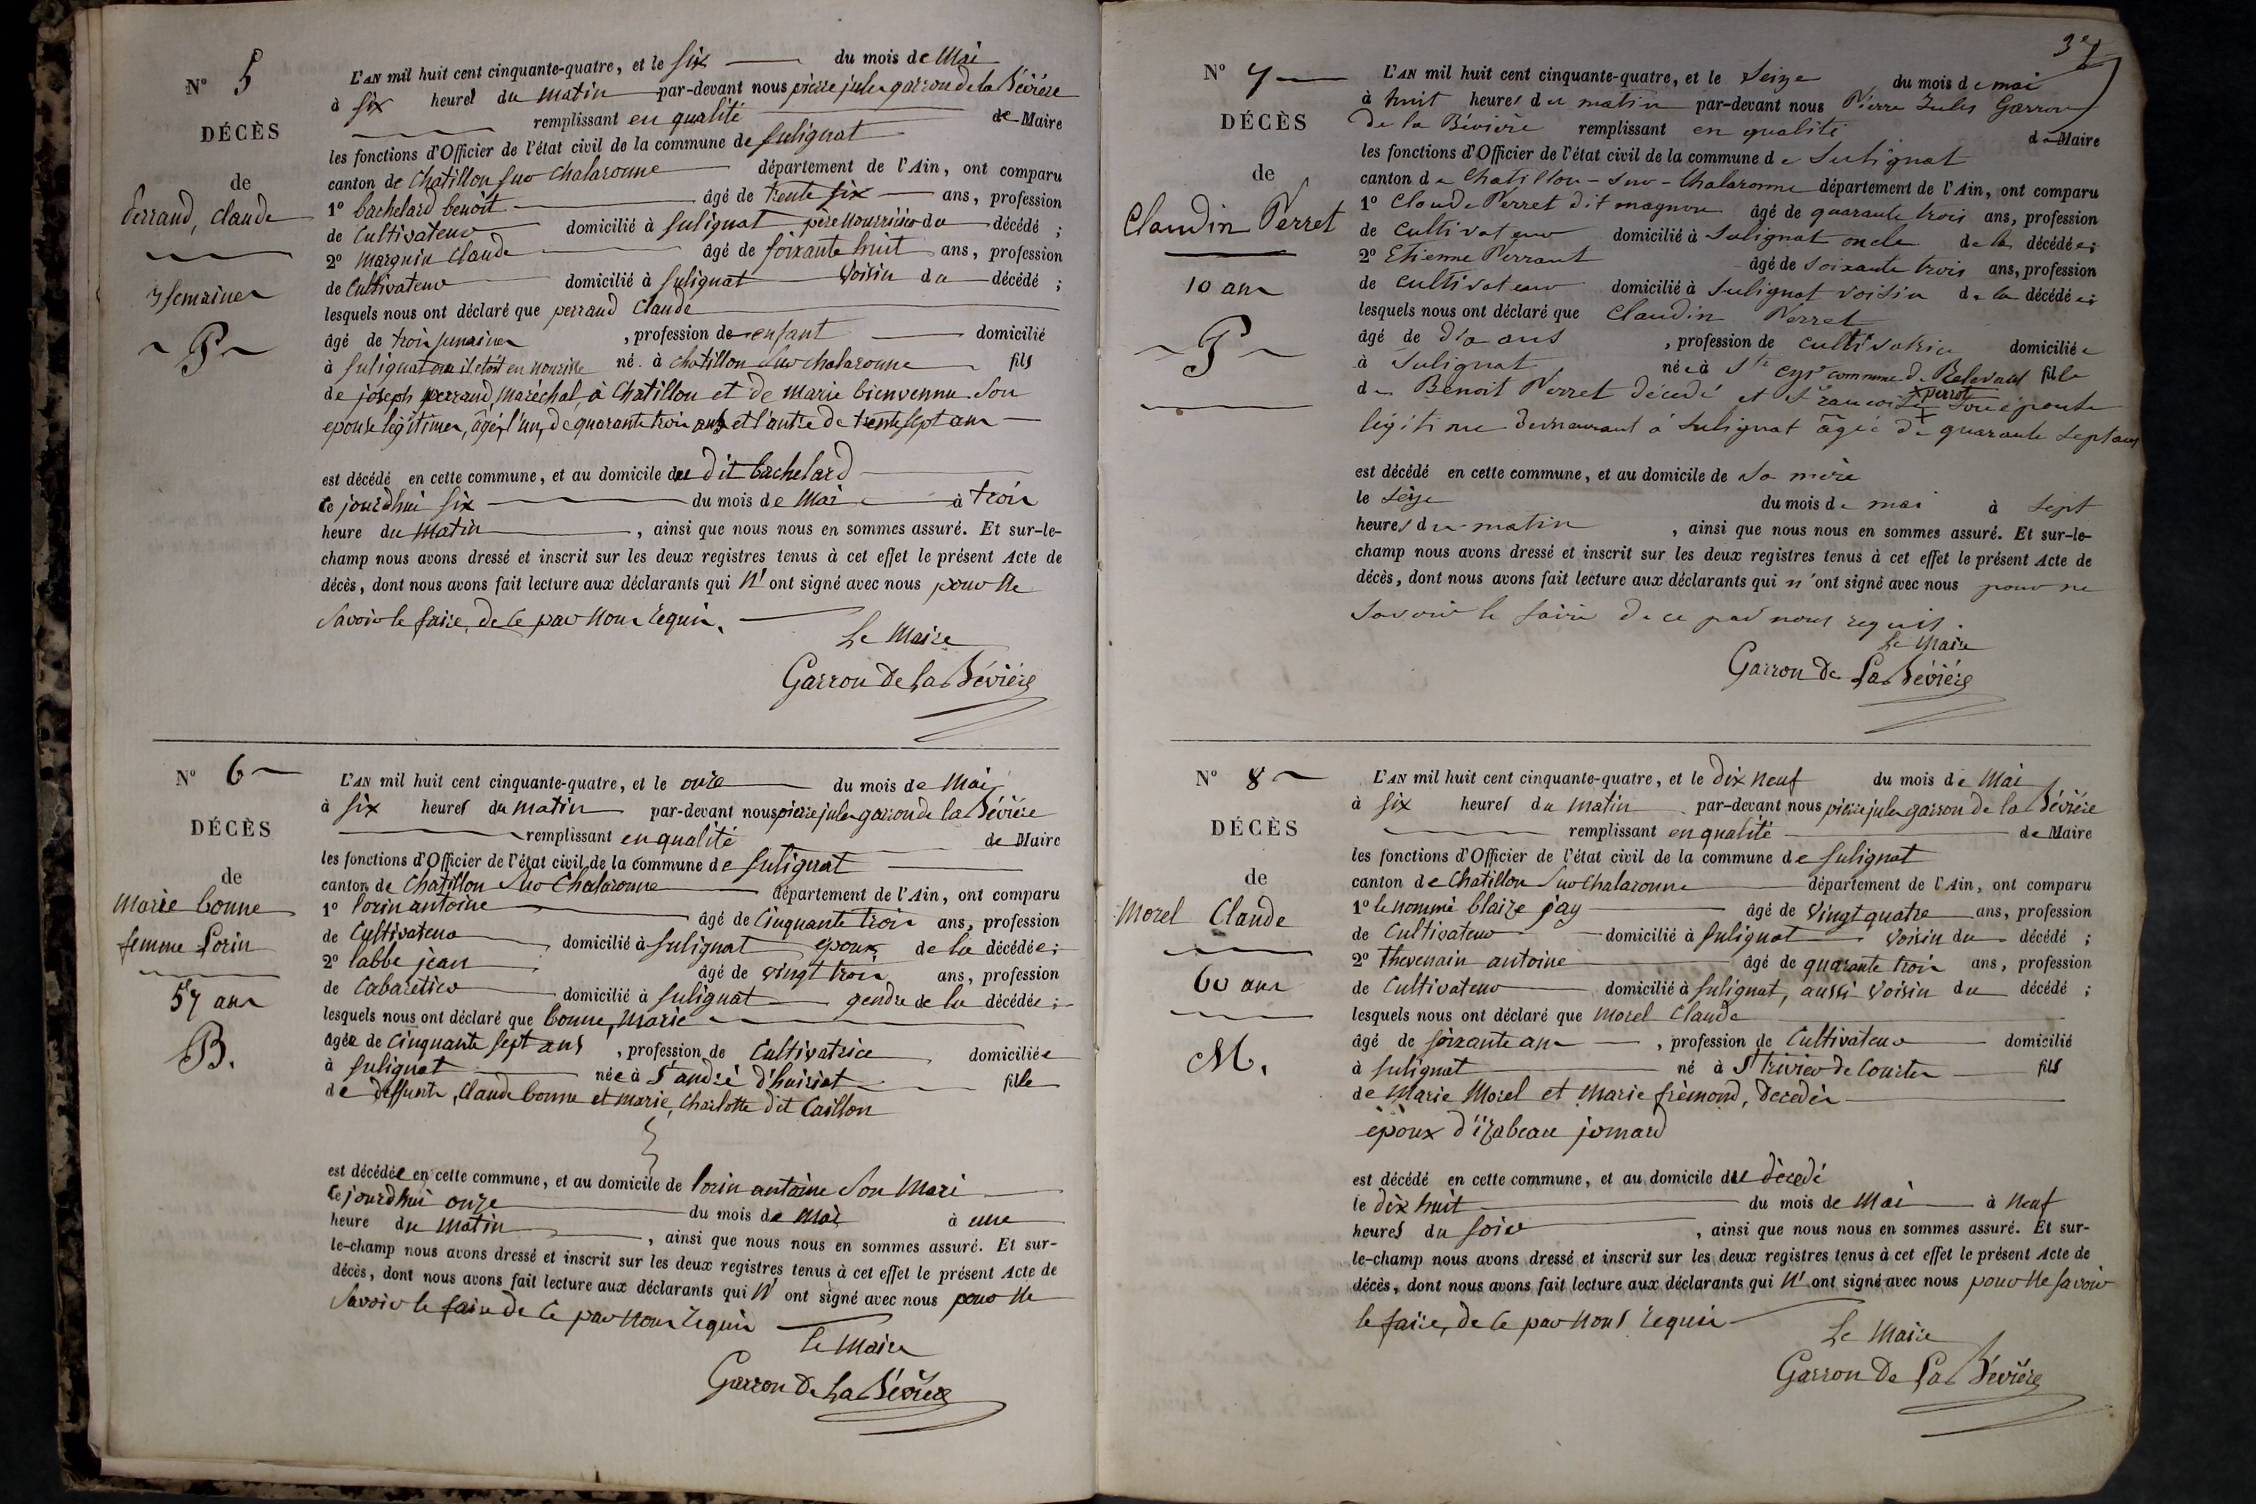 N° 5
DÉCÈS
de
Perrand, Claude
3 semaines
P
L'AN mil huit cent cinquante-quatre, et le six du mois de Mai
à six heures du matin par-devant nous pierre jules garron de la Bévière
remplissant en qualité de Maire
les fonctions d'Officier de l'état civil de la commune de Sulignat
canton de Chatillon sur Chalaronne département de l'Ain, ont comparu
1° bachelard benoit âgé de trente six ans, profession
de Cultivateur domicilié à Sulignat père nourricier du décédé ;
2° Marguin Claude âgé de soixante huit ans, profession
de Cultivateur domicilié à Sulignat Voisin du décédé ;
lesquels nous ont déclaré que perrand Claude
âgé de trois semaines , profession de enfant domicilié
à Sulignat où il étoit en nourrice né à Chatillon sur Chalaronne fils
de joseph perrand, maréchal à Chatillon et de Marie bienvenue Son
epouse légitimes, âgés, l'un de quarante trois ans et l'autre de trente sept ans
est décédé en cette commune, et au domicile du dit bachelard
ce jourdhui six du mois de Mai à trois
heure du Matin , ainsi que nous nous en sommes assuré. Et sur-le-
champ nous avons dressé et inscrit sur les deux registres tenus à cet effet le présent Acte de
décès, dont nous avons fait lecture aux déclarants qui N' ont signé avec nous pour Ne
Savoir le faire, de ce par Nous requis.
Le Maire
Garron De La Bévière
N° 6
DÉCÈS
de
Marie bonne
femme Lorin
57 ans
B.
L'AN mil huit cent cinquante-quatre, et le onze du mois de Mai
à six heures du matin par-devant nous pierre jules garron de la Bévière
remplissant en qualité de Maire
les fonctions d'Officier de l'état civil de la commune de Sulignat
canton de Chatillon Sur Chalaronne département de l'Ain, ont comparu
1° lorin antoine âgé de Cinquante trois ans, profession
de Cultivateur domicilié à Sulignat epoux de la décédée ;
2° labbe jean âgé de vingt trois ans, profession
de Cabaretier domicilié à Sulignat gendre de la décédée ;
lesquels nous ont déclaré que bonne, Marie
âgée de Cinquante sept ans , profession de Cultivatrice domiciliée
à Sulignat née à St andré d'huiriat fille
de deffunts, Claude bonne et marie, Charlotte dit Caillon
est décédée en cette commune, et au domicile de lorin antoine Son Mari
ce jourdhui onze du mois de Mai à une
heure du Matin , ainsi que nous nous en sommes assuré. Et sur-
le-champ nous avons dressé et inscrit sur les deux registres tenus à cet effet le présent Acte de
décès, dont nous avons fait lecture aux déclarants qui N' ont signé avec nous pour Ne
Savoir le faire de ce par Nous requis
le Maire
Garron De La Bévière
N° 7
DÉCÈS
de
Claudin Perret
10 ans
P
L'AN mil huit cent cinquante-quatre, et le Seize du mois de mai
à huit heures du matin par-devant nous Pierre Jules Garron
De la Bévière remplissant en qualité de Maire
les fonctions d'Officier de l'état civil de la commune de Sulignat
canton de Chatillon-sur-Chalaronne département de l'Ain, ont comparu
1° Claude Perret dit magnon âgé de quarante trois ans, profession
de cultivateur domicilié à Sulignat oncle de la décédée ;
2° Etienne Perraut âgé de soixante trois ans, profession
de cultivateur domicilié à Sulignat voisin de la décédée ;
lesquels nous ont déclaré que Claudin Perret
âgé de dix ans , profession de cultivatrice domiciliée
à Sulignat née à Ste Cyr commune de Relevant fille
de Benoit Perret décedé et Françoise perrot Son épouse
légitime demeurant à Sulignat âgée de quarante sept ans
est décédé en cette commune, et au domicile de sa mère
le seize du mois de mai à sept
heures du matin , ainsi que nous nous en sommes assuré. Et sur-le-
champ nous avons dressé et inscrit sur les deux registres tenus à cet effet le présent Acte de
décès, dont nous avons fait lecture aux déclarants qui n'ont signé avec nous pour ne
savoir le faire de ce par nous requis.
Le Maire
Garron De La Bévière
N° 8
DÉCÈS
de
Morel Claude
60 ans
M.
L'AN mil huit cent cinquante-quatre, et le Dix neuf du mois de Mai
à six heures du matin par-devant nous pierre jules garron de la Bévière
remplissant en qualité de Maire
les fonctions d'Officier de l'état civil de la commune de Sulignat
canton de Chatillon Sur Chalaronne département de l'Ain, ont comparu
1° le nommé blaize jay âgé de vingt quatre ans, profession
de Cultivateur domicilié à Sulignat Voisin du décédé ;
2° thevenain antoine âgé de quarante trois ans, profession
de Cultivateur domicilié à Sulignat, aussi Voisin du décédé ;
lesquels nous ont déclaré que Morel Claude
âgé de soixante ans , profession de Cultivateur domicilié
à Sulignat né à St trivier de Courtes fils
de Marie Morel et Marie frémond, Decedés
époux d'izabeau jomard
est décédé en cette commune, et au domicile du décedé
le dix huit du mois de Mai à Neuf
heures du soir , ainsi que nous nous en sommes assuré. Et sur-
le-champ nous avons dressé et inscrit sur les deux registres tenus à cet effet le présent Acte de
décès, dont nous avons fait lecture aux déclarants qui N' ont signé avec nous pour Ne savoir
le faire, de ce par Nous requis
Le Maire
Garron De La Bévière